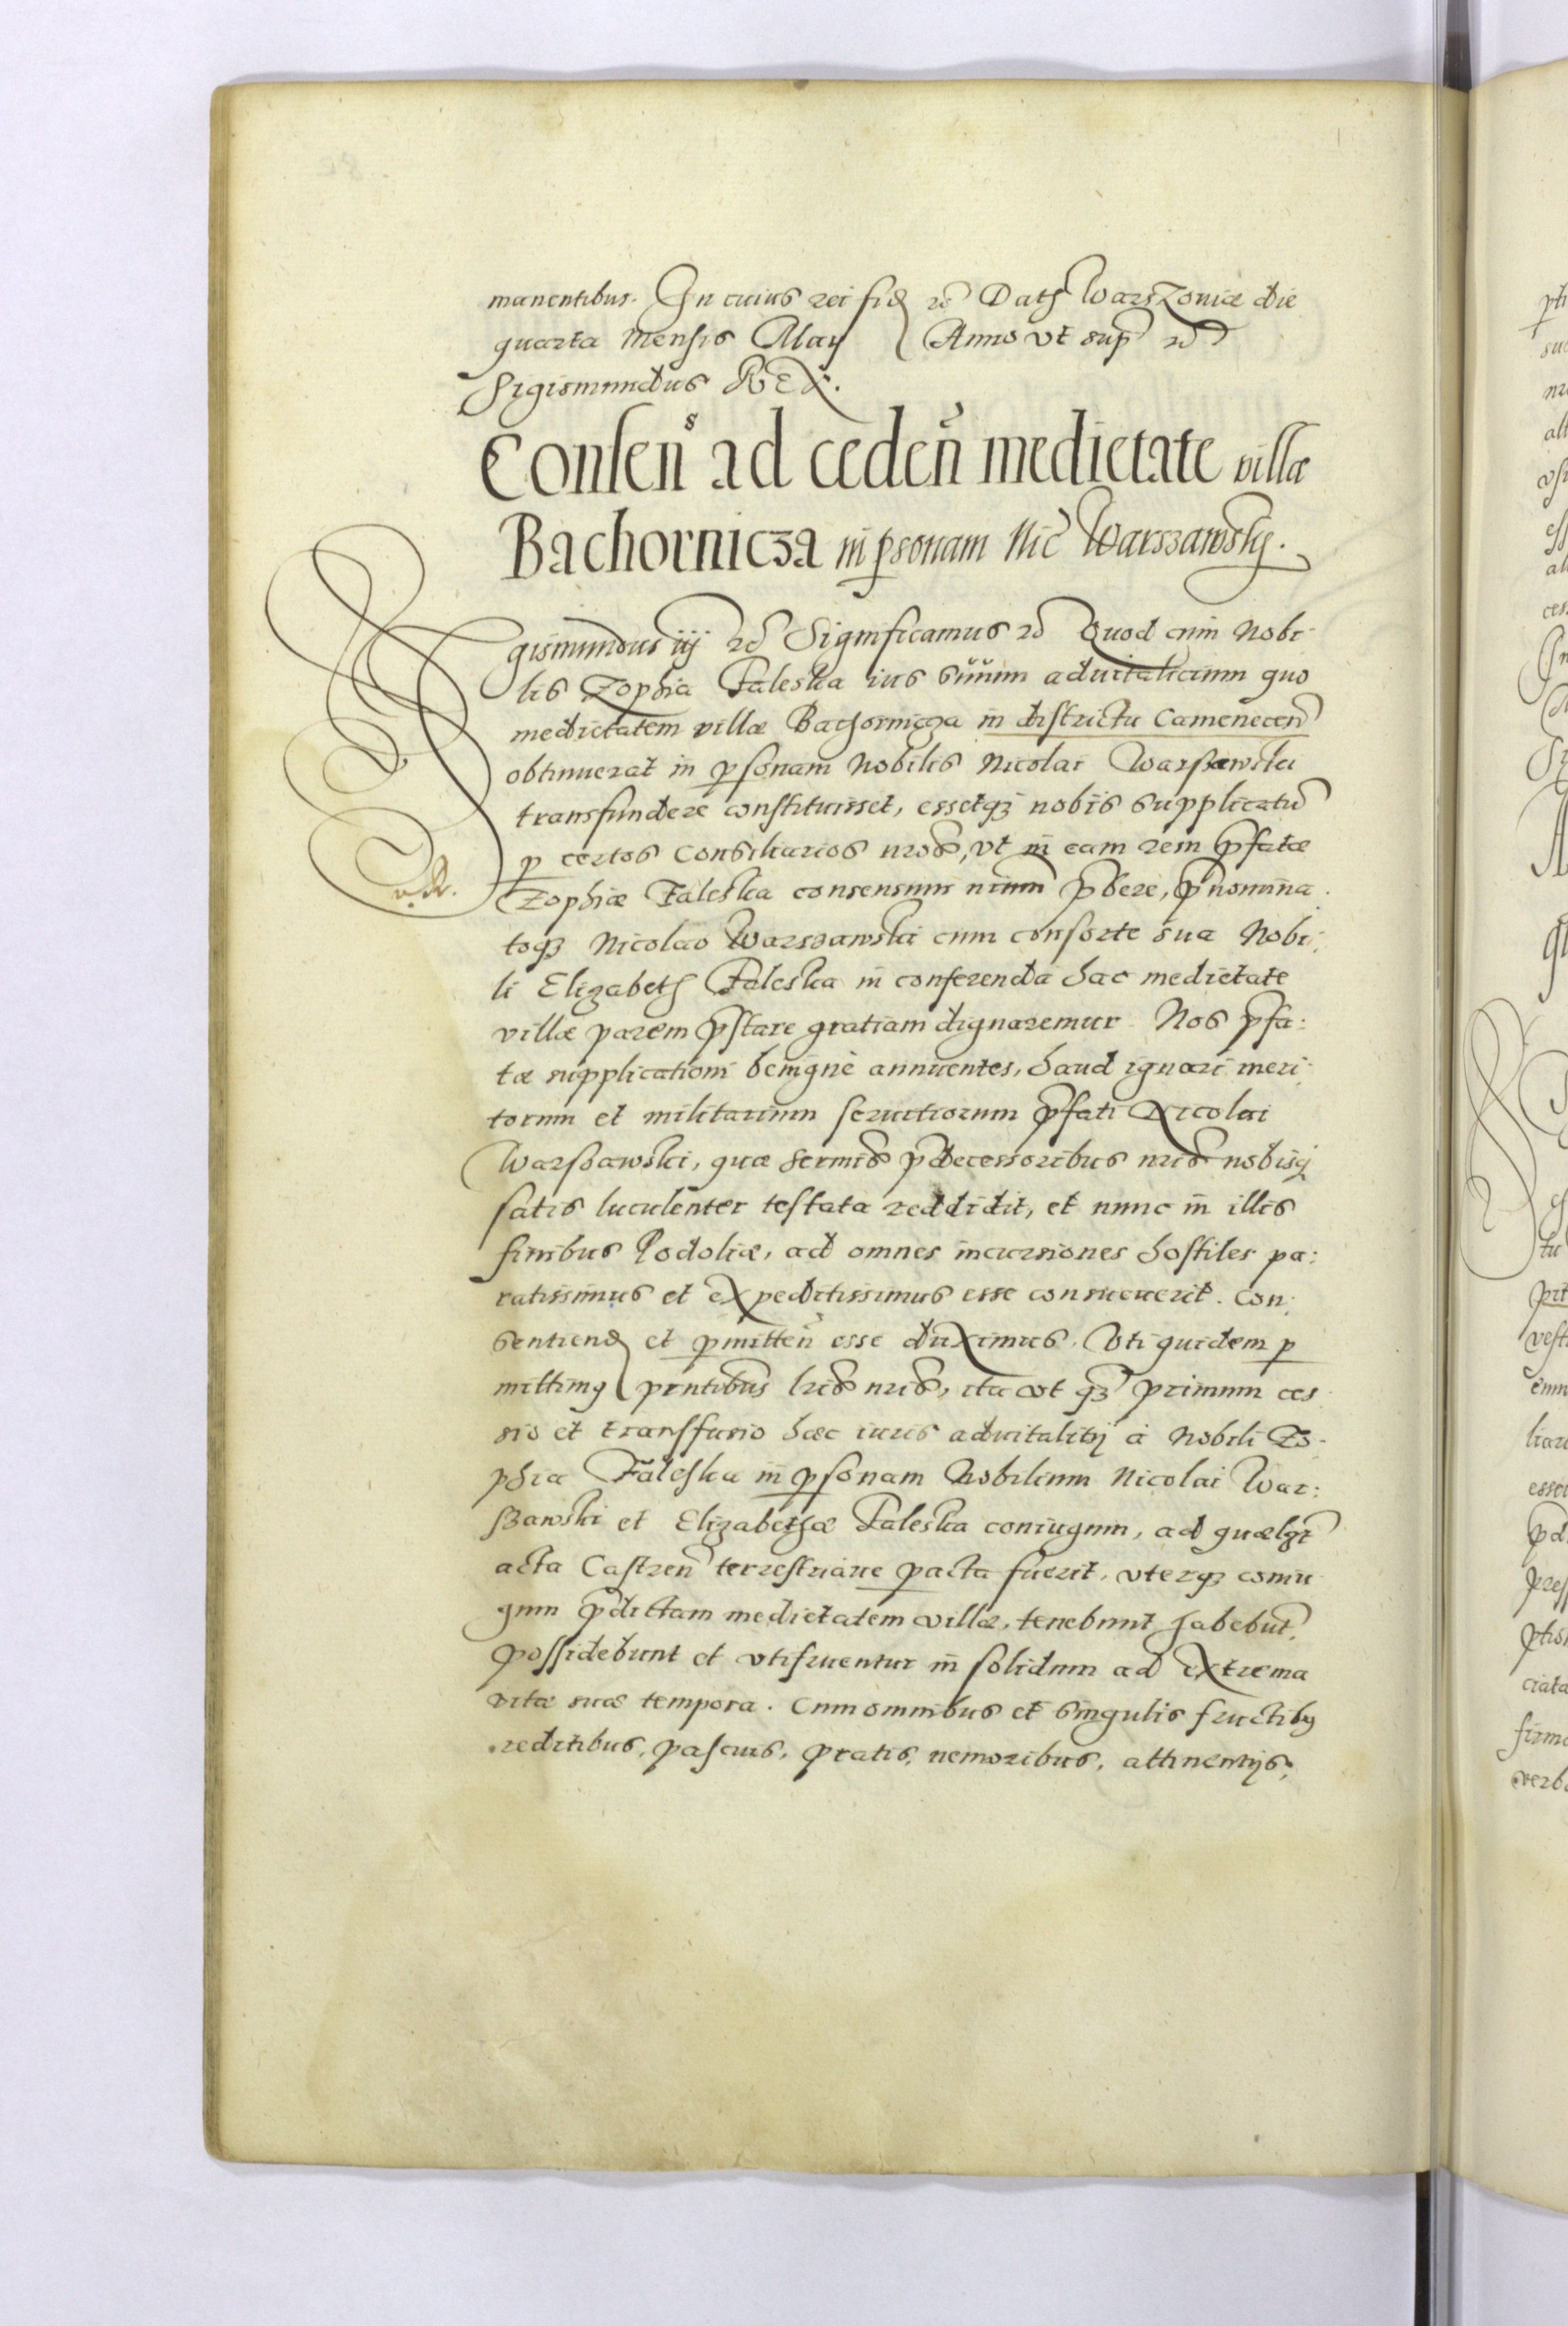 manentibus. In cuius rei fid etc Dat Warszoviæ die
quarta Mensis May Anno vt sup etc
Sigismundus REX.
Consens ad ceden medietate villæ
Bachornicza in psonam Nic Warszawsky.
Sigismundus iij etc Significamus etc Quod cum Nobi-
lis Zophia Faleska ius suum aduitalicium quo
medietatem villæ Bachornicza in districtu Camenecen
obtinuerat in psonam Nobilis Nicolai Warszawski
transfundere constituisset, essetq nobis supplicatu
p certos Consiliarios nros, vt in eam rem pfatæ
Zophiæ Faleska consensum nrum pbere, pnomina
toq Nicolao Warszawski cum consorte sua Nobi
li Elizabeth Faleska in conferenda hac medietate
villæ parem pstare gratiam dignaremur. Nos pfa:
tæ supplicationi benignè annuentes, haud ignari meri
torum et militarium seruitiorum pfati Nicolai
Warszawski, quæ sermis pdecessoribus nris nobisq
satis luculenter testata reddidit, et nunc in illis
finibus Podoliæ, ad omnes incursiones hostiles pa:
ratissimus et expeditissimus esse consueuerit. Con
sentiend et pmitten esse duximus. Vti quidem p
mittimq pntibus lris nris, ita vt q primum ces
sio et transfusio hæc iuris aduitalitij à Nobili Zo-
phia Faleska in psonam Nobilium Nicolai War:
szawski et Elizabethæ Faleska coniugum, ad quælzt
acta Castren terrestriaue pacta fuerit, vterq coniu
gum pdictam medietatem villæ, tenebunt habebut,
possidebunt et vtifruentur in solidum ad extrema
vitæ suæ tempora. Cum omnibus et singulis fructibq
reditibus, pascuis, pratis, nemoribus, attinentijs,